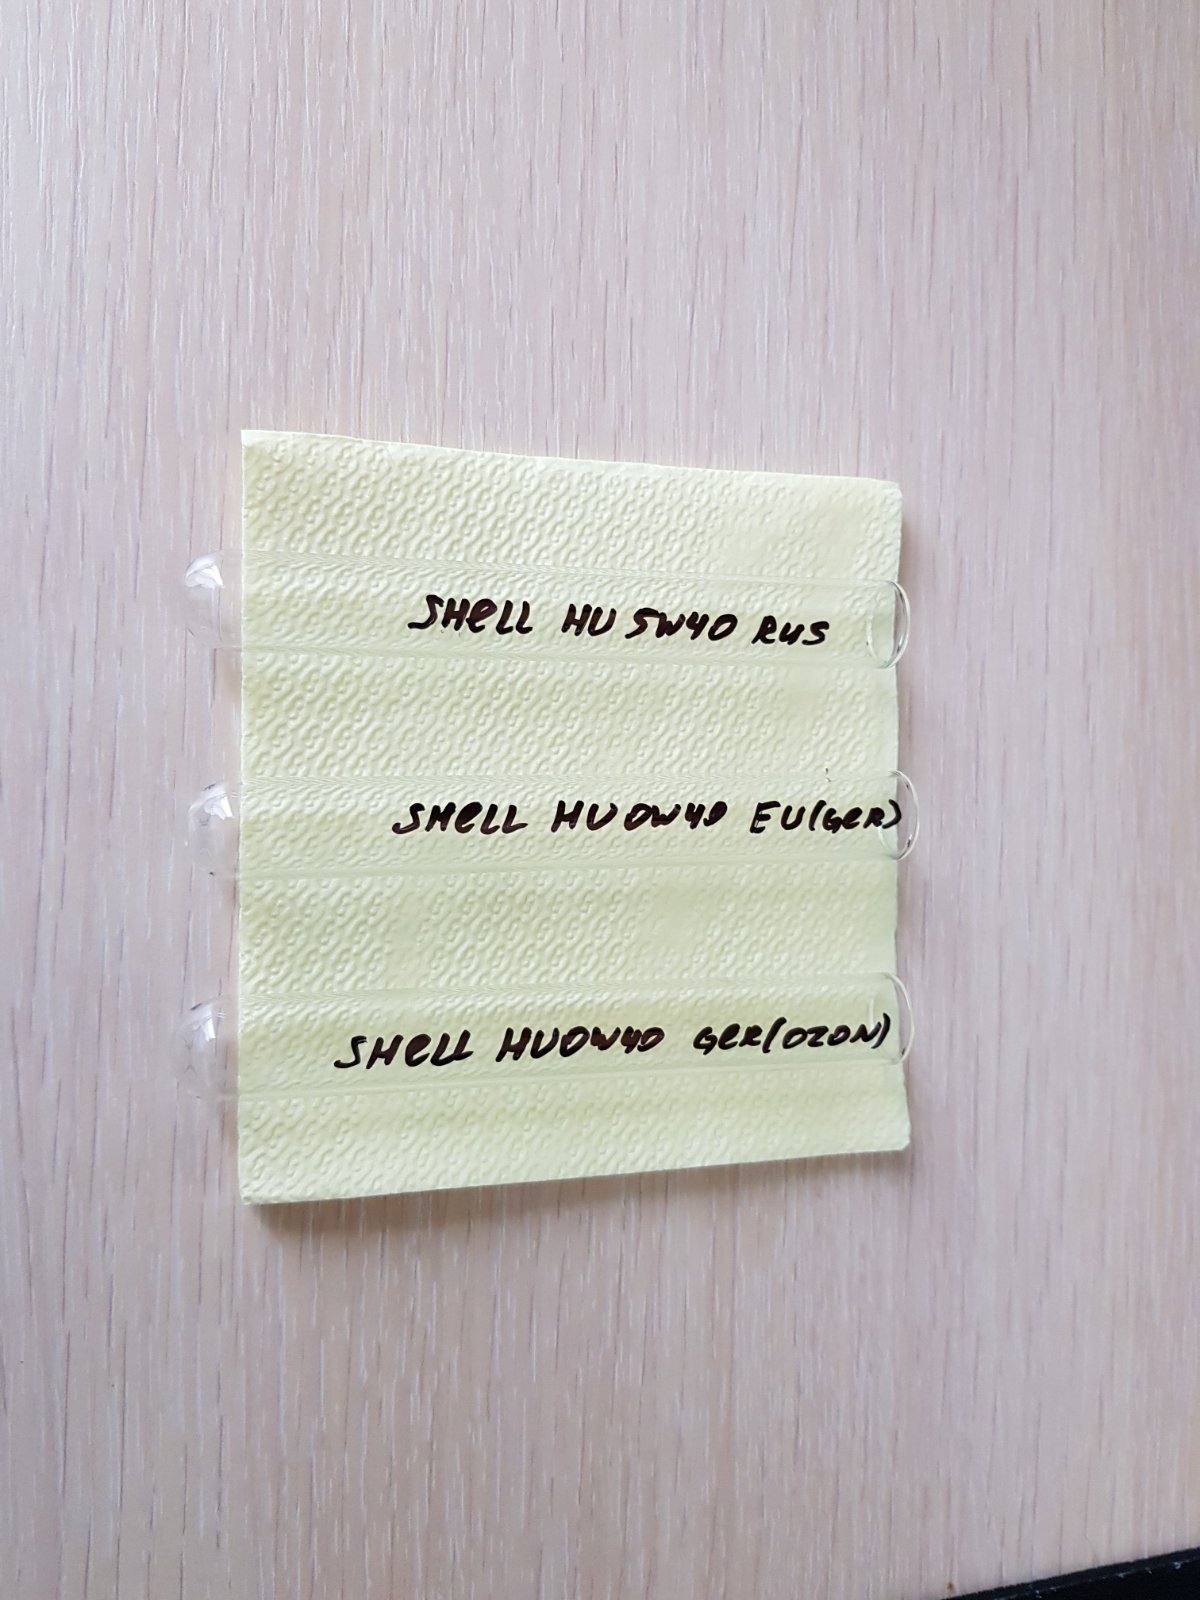 SHELL HU 5W40 RUS
SHELL HU 0W40 EU(GER)
SHELL HU0W40 GER(OZON)